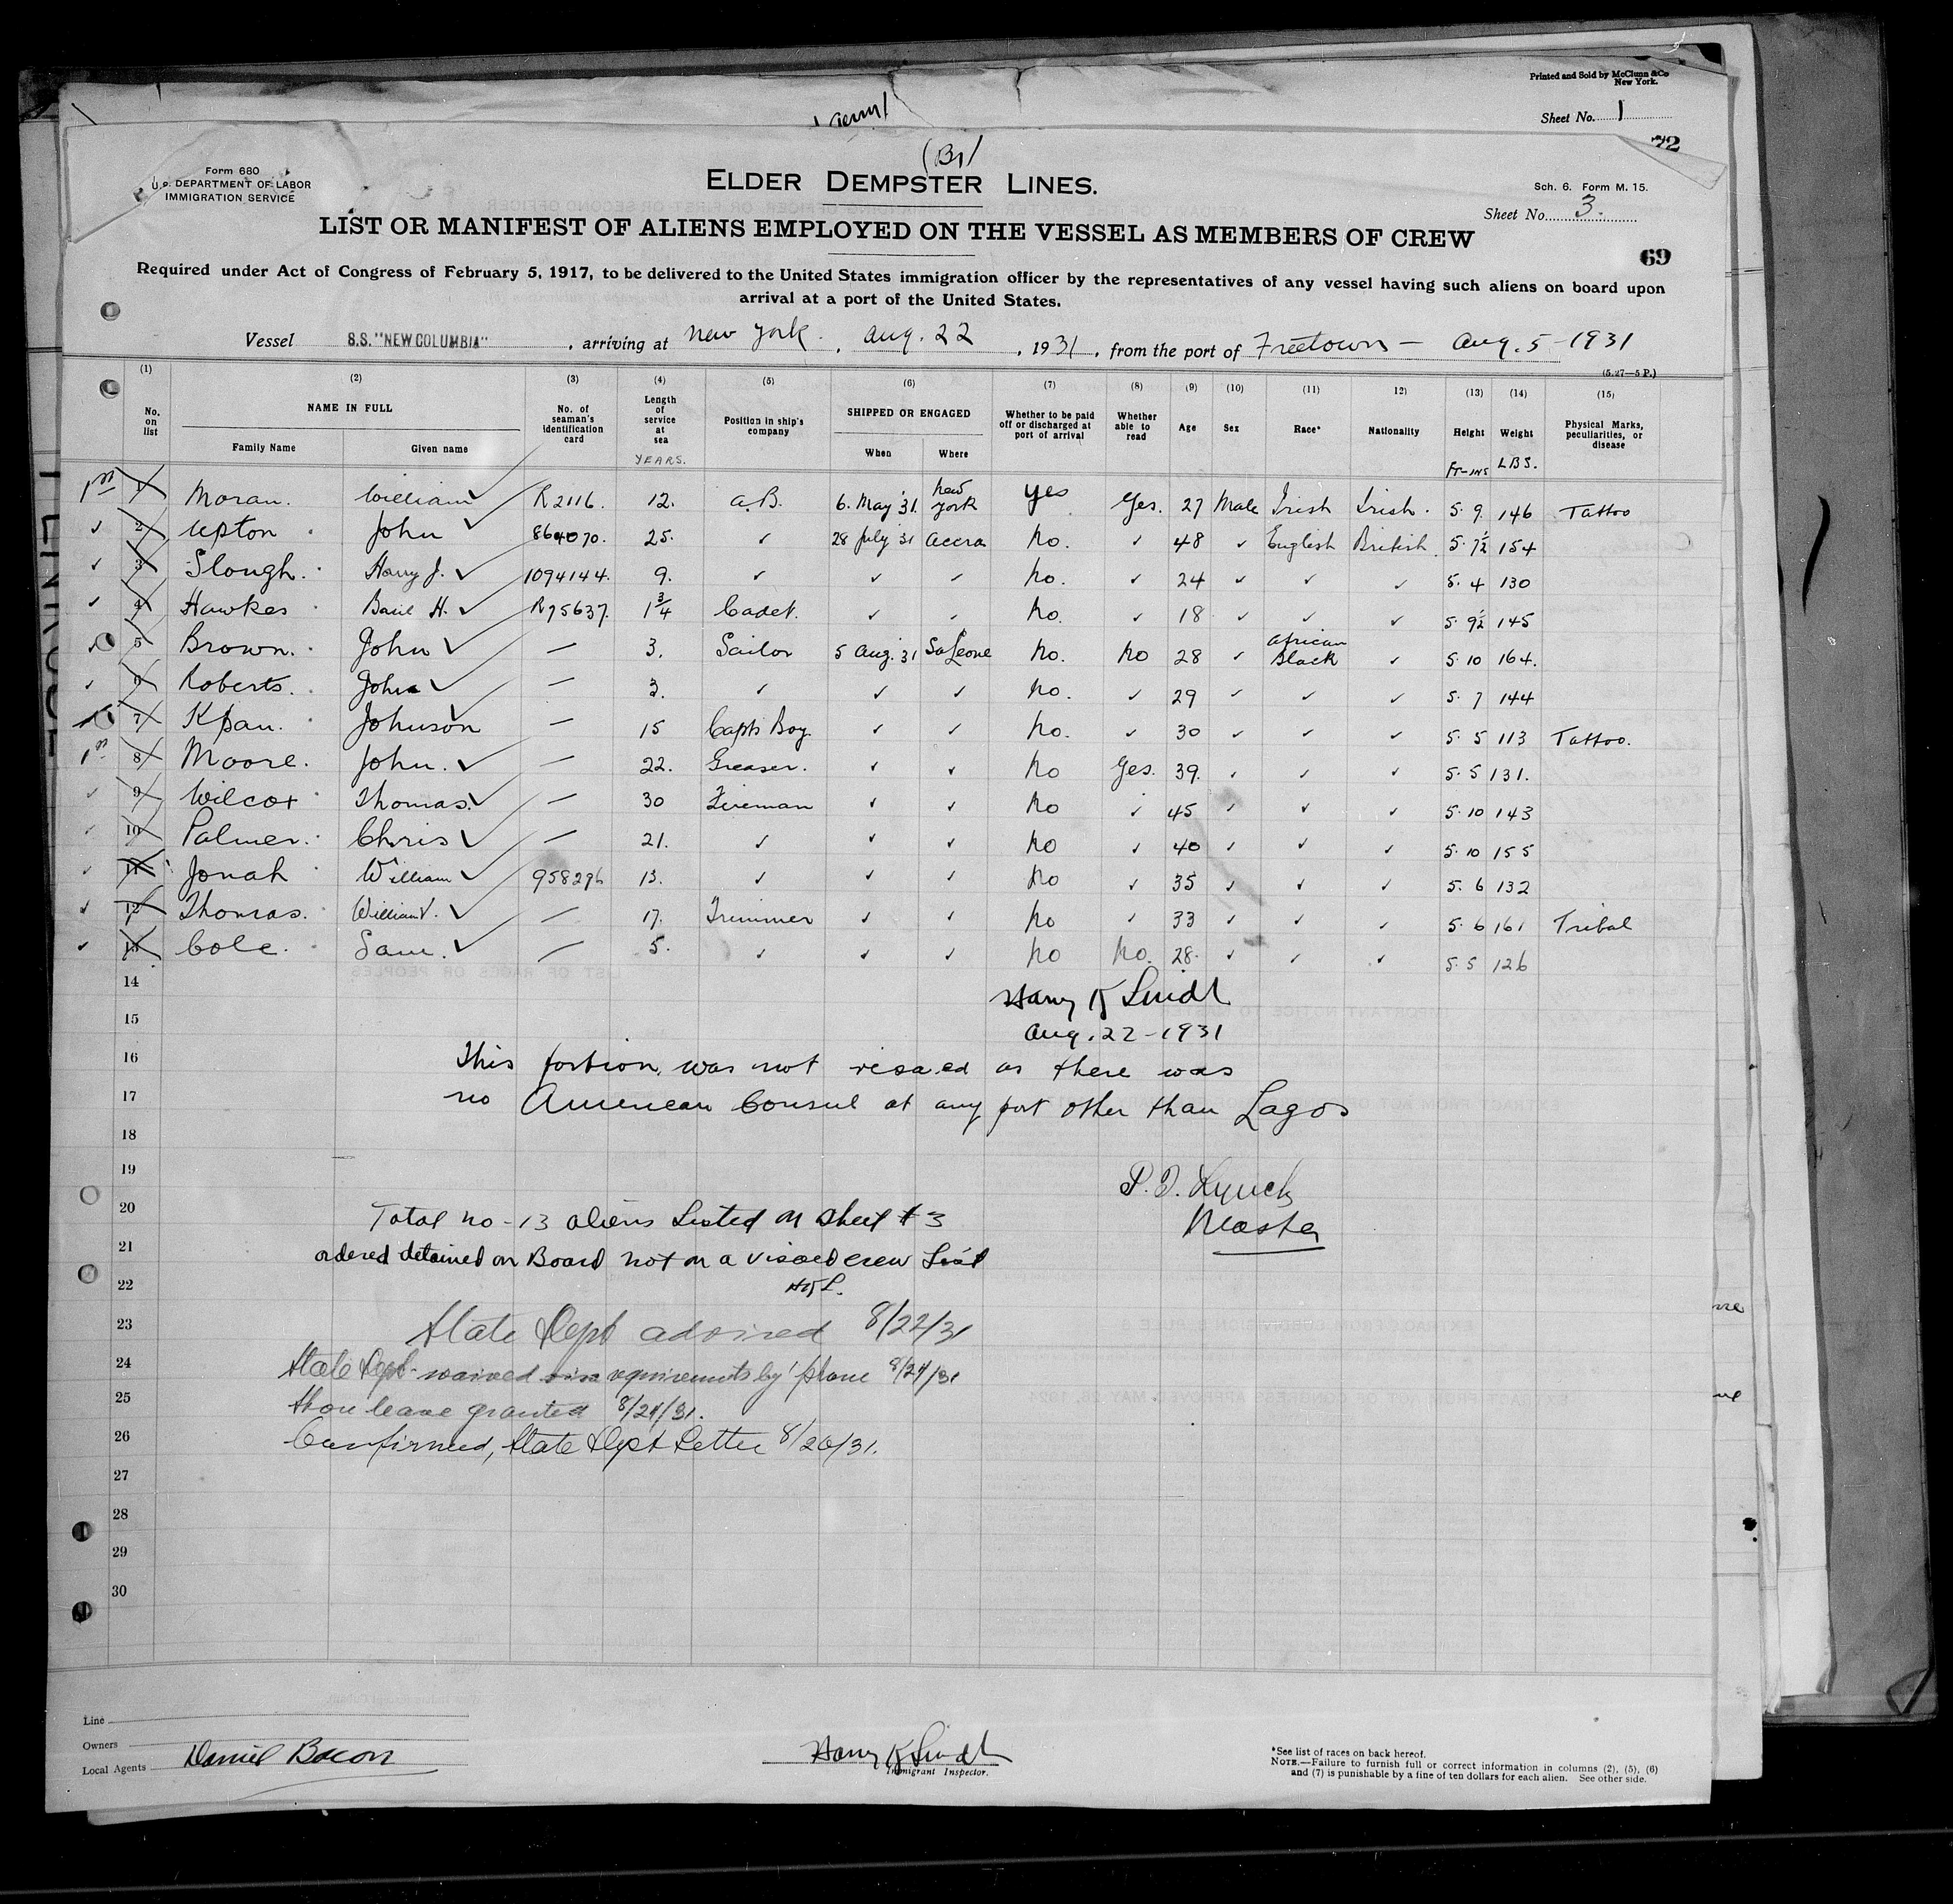 Printed and Sold by McClunn & Co
New York.
Sheet No. 1
72
(Br)
Form 680
U.S. DEPARTMENT OF LABOR
IMMIGRATION SERVICE
ELDER DEMPSTER LINES.
Sch. 6. Form M. 15.
Sheet No. 3.
LIST OR MANIFEST OF ALIENS EMPLOYED ON THE VESSEL AS MEMBERS OF CREW
69
Required under Act of Congress of February 5, 1917, to be delivered to the United States immigration officer by the representatives of any vessel having such aliens on board upon
arrival at a port of the United States.
Vessel S.S. "NEW COLUMBIA", arriving at New York, Aug. 22, 1931, from the port of Freetown - Aug. 5 - 1931
(5.27—5 P.)
(1) (2) (3) (4) (5) (6) (7) (8) (9) (10) (11) 12) (13) (14) (15)
No. on list NAME IN FULL Family Name Given name No. of seaman's identification card Length of service at sea YEARS. Position in ship's company SHIPPED OR ENGAGED When Where Whether to be paid off or discharged at port of arrival Whether able to read Age Sex Race* Nationality Height FT-INS Weight LBS. Physical Marks, peculiarities, or disease
1 Moran. William ✓ R2116. 12. A.B. 6. May '31. New York Yes Yes. 27 Male Irish Irish. 5. 9. 146 Tattoo
✓ 2 Upton John ✓ 864070. 25. ✓ 28 July 31 Accra No. ✓ 48 ✓ English British. 5. 7½ 154
✓ 3 Slough. Harry J. ✓ 1094144. 9. ✓ ✓ ✓ No. ✓ 24 ✓ ✓ ✓ 5. 4 130
✓ 4 Hawkes Basil H. ✓ R75637. 1¾ Cadet. ✓ ✓ No. ✓ 18 ✓ ✓ ✓ 5. 9½ 145
5 Brown. John ✓ — 3. Sailor 5 Aug. 31 Sa Leone No. No 28 ✓ African Black ✓ 5. 10 164.
✓ 6 Roberts. John ✓ — 3. ✓ ✓ ✓ No. ✓ 29 ✓ ✓ ✓ 5. 7 144
7 Kpan. Johnson ✓ — 15 Capts Boy ✓ ✓ No. ✓ 30 ✓ ✓ ✓ 5. 5 113 Tattoo.
8 Moore. John. ✓ — 22. Greaser. ✓ ✓ No Yes. 39. ✓ ✓ ✓ 5. 5 131.
✓ 9 Wilcox Thomas. ✓ — 30 Fireman ✓ ✓ No ✓ 45 ✓ ✓ ✓ 5. 10 143
✓ 10 Palmer. Chris ✓ — 21. ✓ ✓ ✓ No ✓ 40 ✓ ✓ ✓ 5. 10 155
✓ 11 Jonah William ✓ 958296 13. ✓ ✓ ✓ No ✓ 35 ✓ ✓ ✓ 5. 6 132
✓ 12 Thomas. William V. ✓ — 17. Trimmer ✓ ✓ No ✓ 33 ✓ ✓ ✓ 5. 6 161 Tribal
✓ 13 Cole. Sam. ✓ — 5. ✓ ✓ ✓ No No. 28. ✓ ✓ ✓ 5. 5 126
14 Harry K Lindt
15 Aug. 22-1931
16 This portion was not visaed as there was
17 no American Consul at any port other than Lagos
18
19 Lynch
20 Total no-13 aliens Listed on sheet #3 Master
21 ordered detained on Board not on a visaed crew List
22 HKL.
23 State Dept advised 8/22/31
24 State Dept. waived visa requirements by phone 8/24/31
25 Shore leave granted 8/24/31.
26 Confirmed, State Dept Letter 8/26/31.
27
28
29
30
Line
Owners
Local Agents Daniel Bacon
Harry K Lindt
Immigrant Inspector.
*See list of races on back hereof.
NOTE.—Failure to furnish full or correct information in columns (2), (5), (6)
and (7) is punishable by a fine of ten dollars for each alien. See other side.